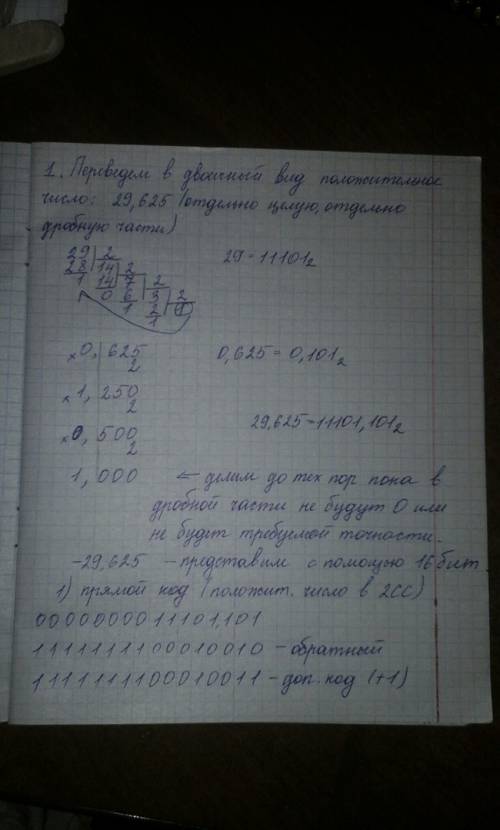 1. Переведем в двоичный вид положительное
число: 29,625 (отдельно целую, отдельно
дробную части)
29 | 2
28 | 14 | 2
1 | 14 | 7 | 2
0 | 6 | 3 | 2
1 | 2 | 1
1
29 = 11101₂
×0, 625
2
0,625 = 0,101₂
×1, 250
2
×0, 500
2
29,625 = 11101,101₂
1, 000 ← делим до тех пор пока в
дробной части не будут 0 или
не будет требуемой точности.
-29,625 - представим с помощью 16 бит.
1) прямой код (положит. число в 2СС)
0000000011101,101
1111111100010010 - обратный
1111111100010011 - доп. код (+1)